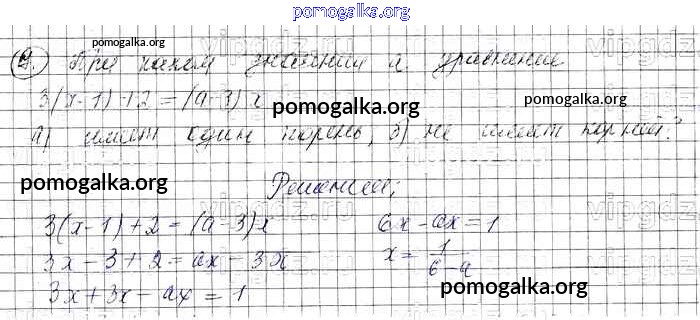 pomogalka.org
9. При каком значении а уравнение
3(x-1)+2=(a-3)x
а) имеет один корень, б) не имеет корней?
Решение:
3(x-1)+2=(a-3)x
3x-3+2=ax-3x
3x+3x-ax=1
6x-ax=1
x=1/(6-a)
pomogalka.org
pomogalka.org
pomogalka.org
pomogalka.org
pomogalka.org
pomogalka.org
pomogalka.org